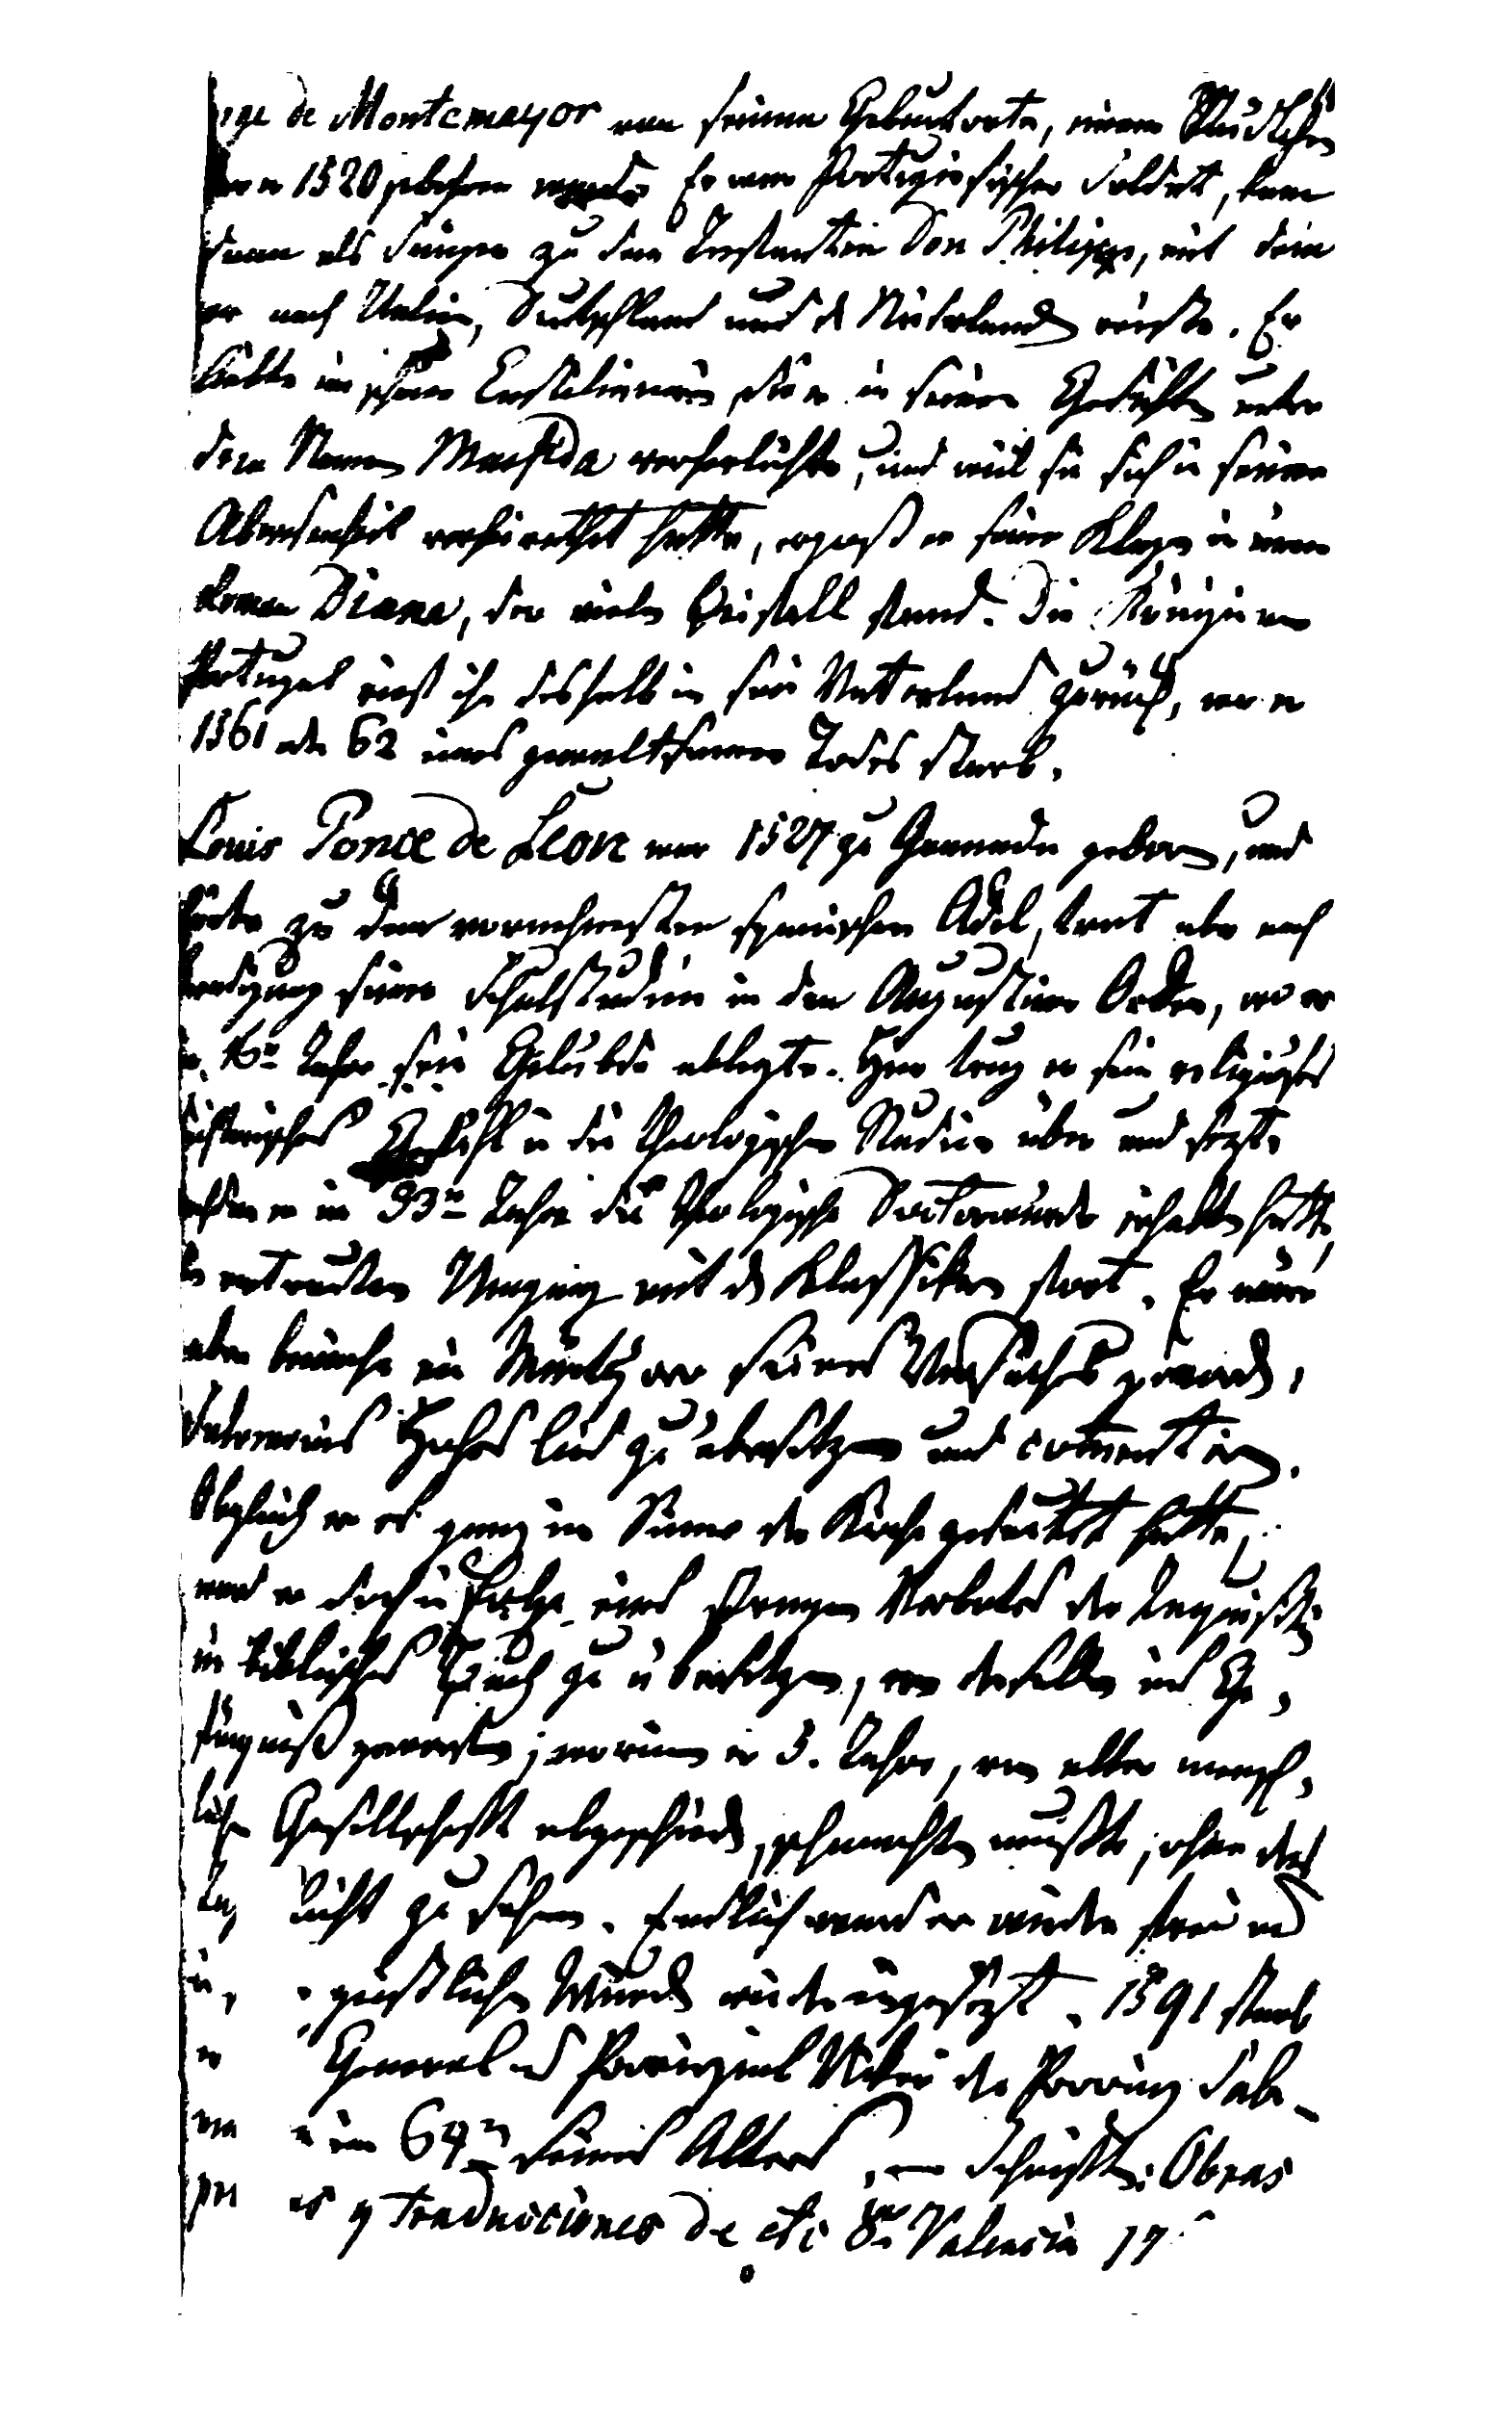 ge de Montemayor von seinem Geburtsorte, einem Städtchen
wo er 1520 gebohren wurde Er war Portugiesischer Soldat, kam
dann als Sänger zu dem Infanten Don Philipp, mit dem
er nach Italien, Deutschland und d Niederlande reiste. Er
hatte eine schöne Castilianerin die er in seinen Gedichten unter
dem Namen Marfida verherrlichte, und weil sie sich in seiner
Abwesenheit verheirathet hatte, ergoß er seine Klagen in einem
Roman Diana, der vielen Beifall fand. Die Königin von
Portugal rief ihn deshalb in sein Vaterland zurück, wo er
1561 oder 62 eines gewaltsamen Todes starb.
Louis Ponce de Leon war 1527 zu Grenada geboren, und
hörte zu dem vornehmsten spanischen Adel, trat aber nach
endigung seiner Schulstudien in den Augustiner Orden, wo er
16n Jahre sein Gelübde ablegte. Hier trug er sein religiöses
dichterisches Gefühl in die theologischen Studien über und setzte
nachdem er im 33n Jahre die theologische Doctorwürde erhalten hatte
vertrauten Umgang mit d Klassikern fort. Er wäre
aber beinahe ein Märtyrer seines Versuches geword,
Salomons Hohes Lied zu übersetzen und comentiren.
Obgleich er es ganz im Sinne der Kirche gedeutet hatte,
ward er doch in Folge eines strengen Verbotes der Inquisition
ein biblisches Buch zu übersetzen, von derselben ins Ge,
fängniß geworfen; worinn er 5. Jahre, von aller mensch,
lichen Gesellschaft abgeschieden, schmachten mußte, ohne das
Tag Licht zu sehen. Endlich ward er wieder frei und
in, geistlichen Würden wieder eingesetzt. 1591 starb
er General und Provinzial Vikar der Provinz Sala-
man im 64n seines Alters. — Schriften: Obras
pr es y traduciones de etc 8º Valencia 17